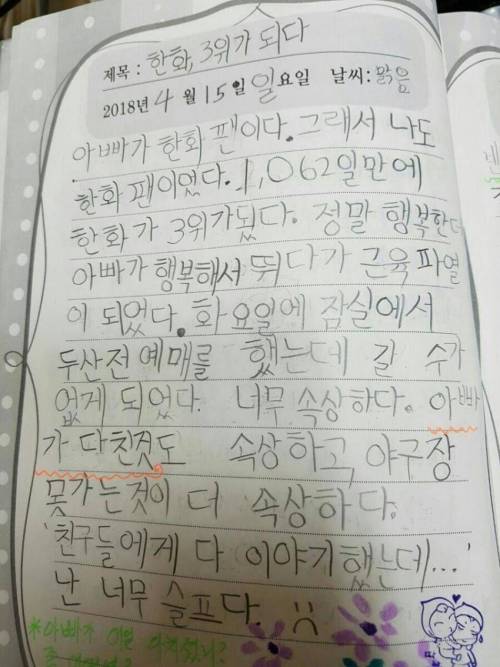 제목 : 한화, 3위가 되다
2018년 4 월 15 일 일 요일 날씨: 맑음
아빠가 한화 팬이다. 그래서 나도
한화 팬이었다. 1,062일만에
한화가 3위가됬다. 정말 행복한데
아빠가 행복해서 뛰다가 근육파열
이 되었다. 화요일에 잠실에서
두산전 예매를 했는데 갈 수가
없게 되었다. 너무 속상하다. 아빠
가 다친것도 속상하고, 야구장
못가는것이 더 속상하다.
'친구들에게 다 이야기했는데...'
난 너무 슬프다. :(
*아빠가